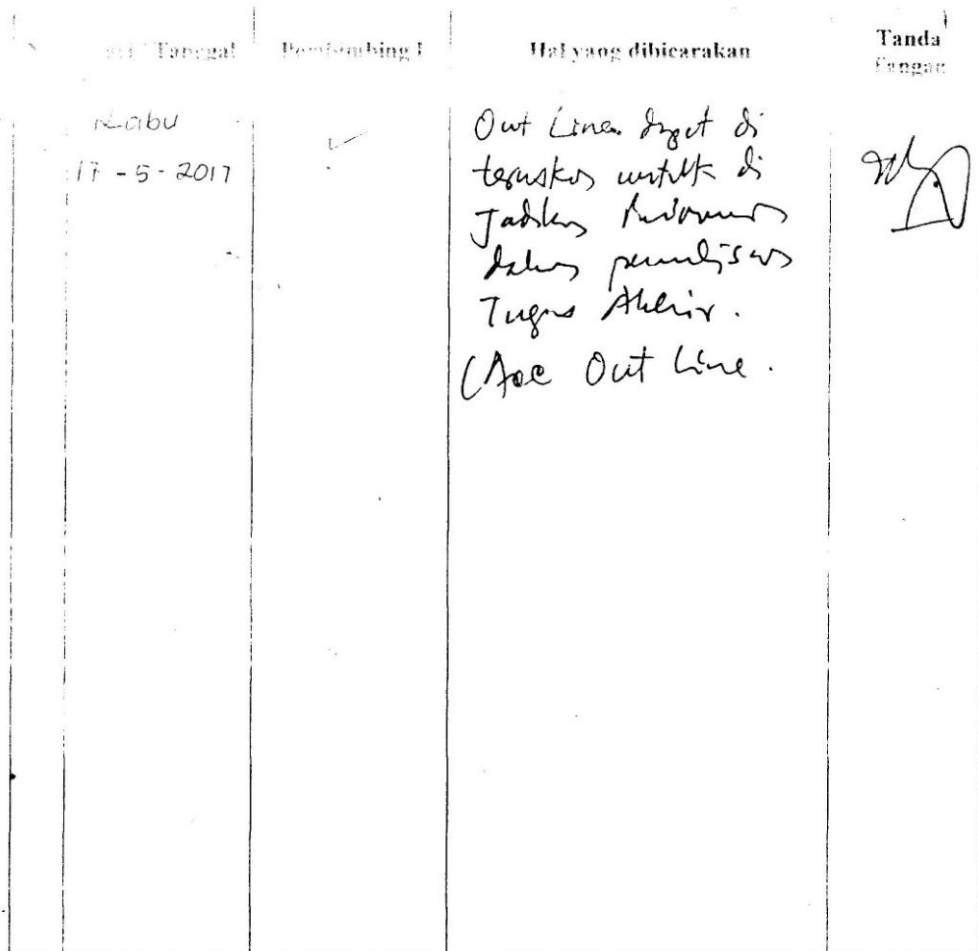 Tanggal Pembimbing I Hal yang dibicarakan Tanda
Tangan
Rabu
17 - 5 - 2017
Out Line dapat di
teruskan untuk di
Jadikan Pedoman
dalam penulisan
Tugas Akhir.
(Acc Out Line.